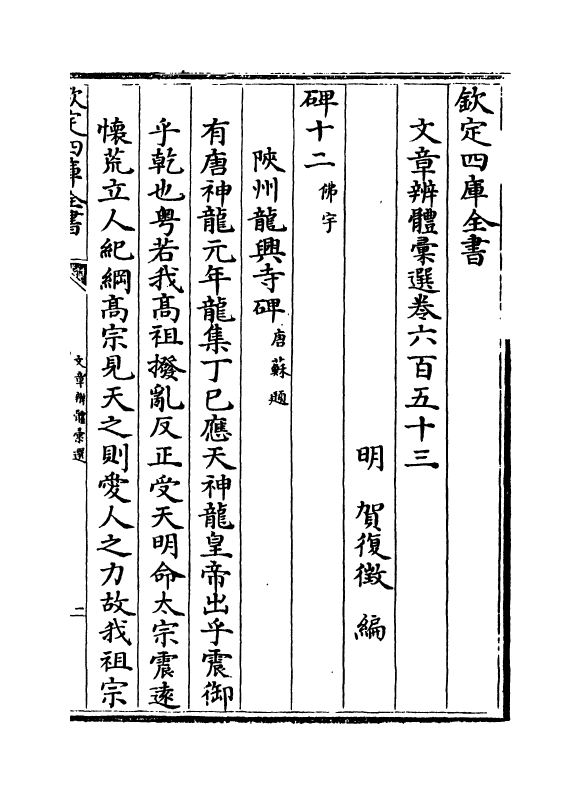 欽定四庫全書
文章辨體彚選卷六百五十三
明 賀復徵 編
碑十二佛宇
陝州龍興寺碑唐蘇題
有唐神龍元年龍集丁巳應天神龍皇帝出乎震御
乎乾也粤若我髙祖撥亂反正受天明命太宗震逺
懷荒立人紀綱髙宗見天之則愛人之力故我祖宗
欽定四庫全書
文章辨體彚選
二